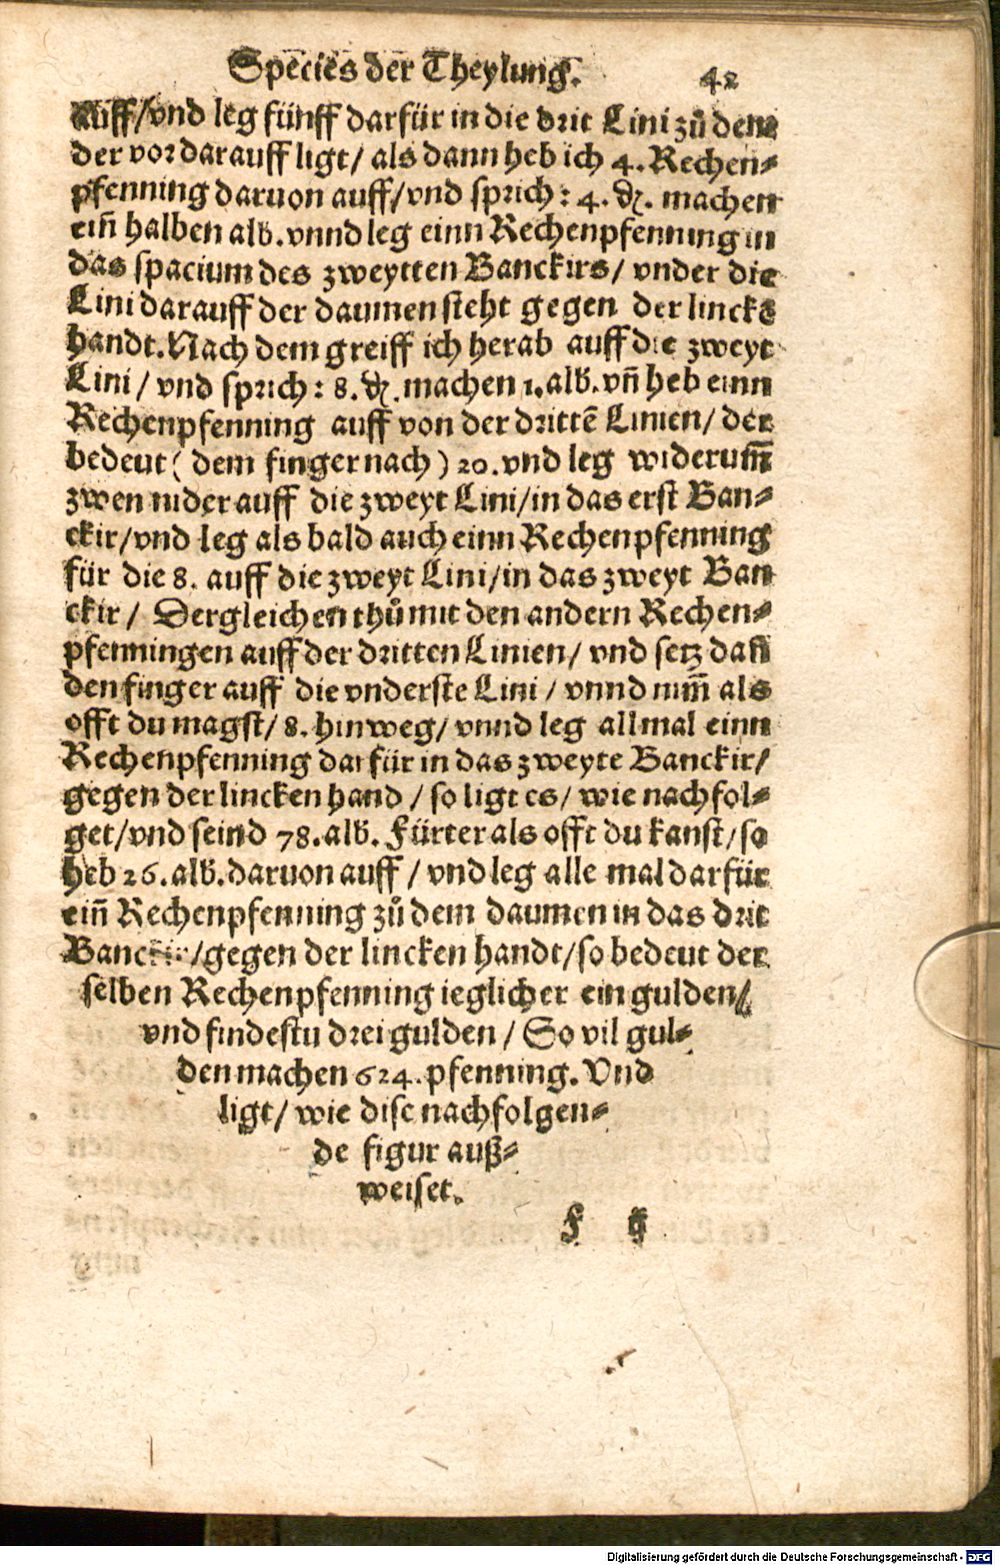 Species der Theylung. 42
auff/vnd leg fünff darfür in die drit Lini zů dem
der vor darauff ligt/ als dann heb ich 4. Rechen⸗
pfenning daruon auff/vnd sprich: 4. ₰. machen
ein̄ halben alb. vnnd leg einn Rechenpfenning in
das spacium des zweytten Banckirs/ vnder die
Lini darauff der daumen steht gegen der lincke
handt. Nach dem greiff ich herab auff die zweyt
Lini / vnd sprich: 8. ₰. machen 1. alb. vn̄ heb einn
Rechenpfenning auff von der drittē Linien/ der
bedeut ( dem finger nach ) 20. vnd leg widerum̄
zwen nider auff die zweyt Lini/in das erst Ban⸗
ckir/vnd leg als bald auch einn Rechenpfenning
für die 8. auff die zweyt Lini/in das zweyt Ban
ckir / Dergleichen thů mit den andern Rechen⸗
pfenningen auff der dritten Linien/ vnd setz dan̄
den finger auff die vnderste Lini / vnnd nim̄ als
offt du magst/ 8. hinweg/ vnnd leg allmal einn
Rechenpfenning darfür in das zweyte Banckir/
gegen der lincken hand / so ligt es/ wie nachfol⸗
get/vnd seind 78. alb. Fürter als offt du kanst/so
heb 26. alb. daruon auff / vnd leg alle mal darfür
ein̄ Rechenpfenning zů dem daumen in das drit
Banckir/gegen der lincken handt/so bedeut der
selben Rechenpfenning ieglicher ein gulden/
vnd findestu drei gulden / So vil gul⸗
den machen 624. pfenning. Vnd
ligt/ wie dise nachfolgen⸗
de figur auß⸗
weiset.
F ij
Digitalisierung gefördert durch die Deutsche Forschungsgemeinschaft - DFG